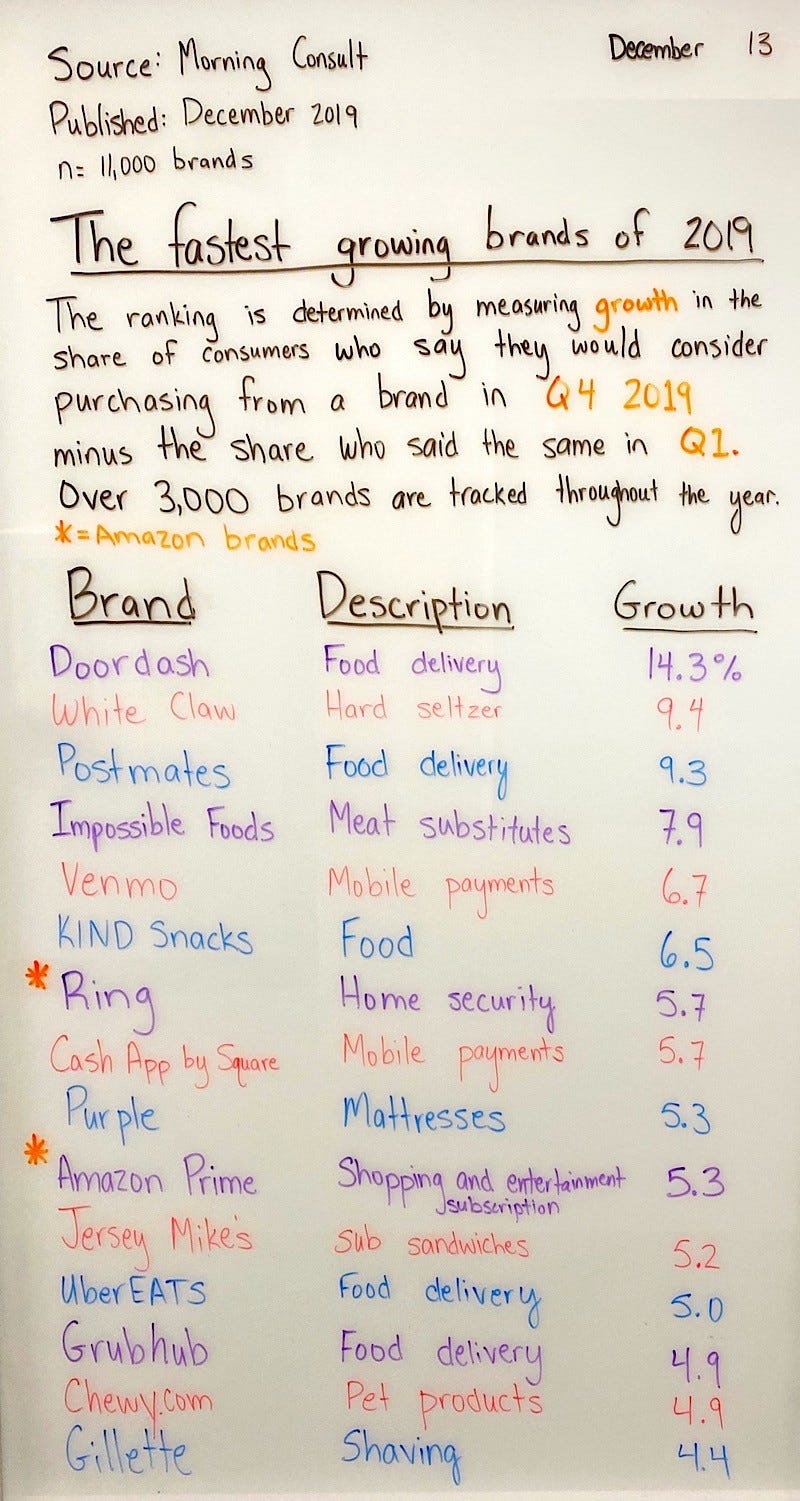 Source: Morning Consult
December 13
Published: December 2019
n= 11,000 brands
The fastest growing brands of 2019
The ranking is determined by measuring growth in the
share of consumers who say they would consider
purchasing from a brand in Q4 2019
minus the share who said the same in Q1.
Over 3,000 brands are tracked throughout the year.
*=Amazon brands
Brand Description Growth
Doordash Food delivery 14.3%
White Claw Hard seltzer 9.4
Postmates Food delivery 9.3
Impossible Foods Meat substitutes 7.9
Venmo Mobile payments 6.7
KIND Snacks Food 6.5
* Ring Home security 5.7
Cash App by Square Mobile payments 5.7
Purple Mattresses 5.3
* Amazon Prime Shopping and entertainment 5.3
subscription
Jersey Mike's sub sandwiches 5.2
UberEATS Food delivery 5.0
Grubhub Food delivery 4.9
Chewy.com Pet products 4.9
Gillette Shaving 4.4